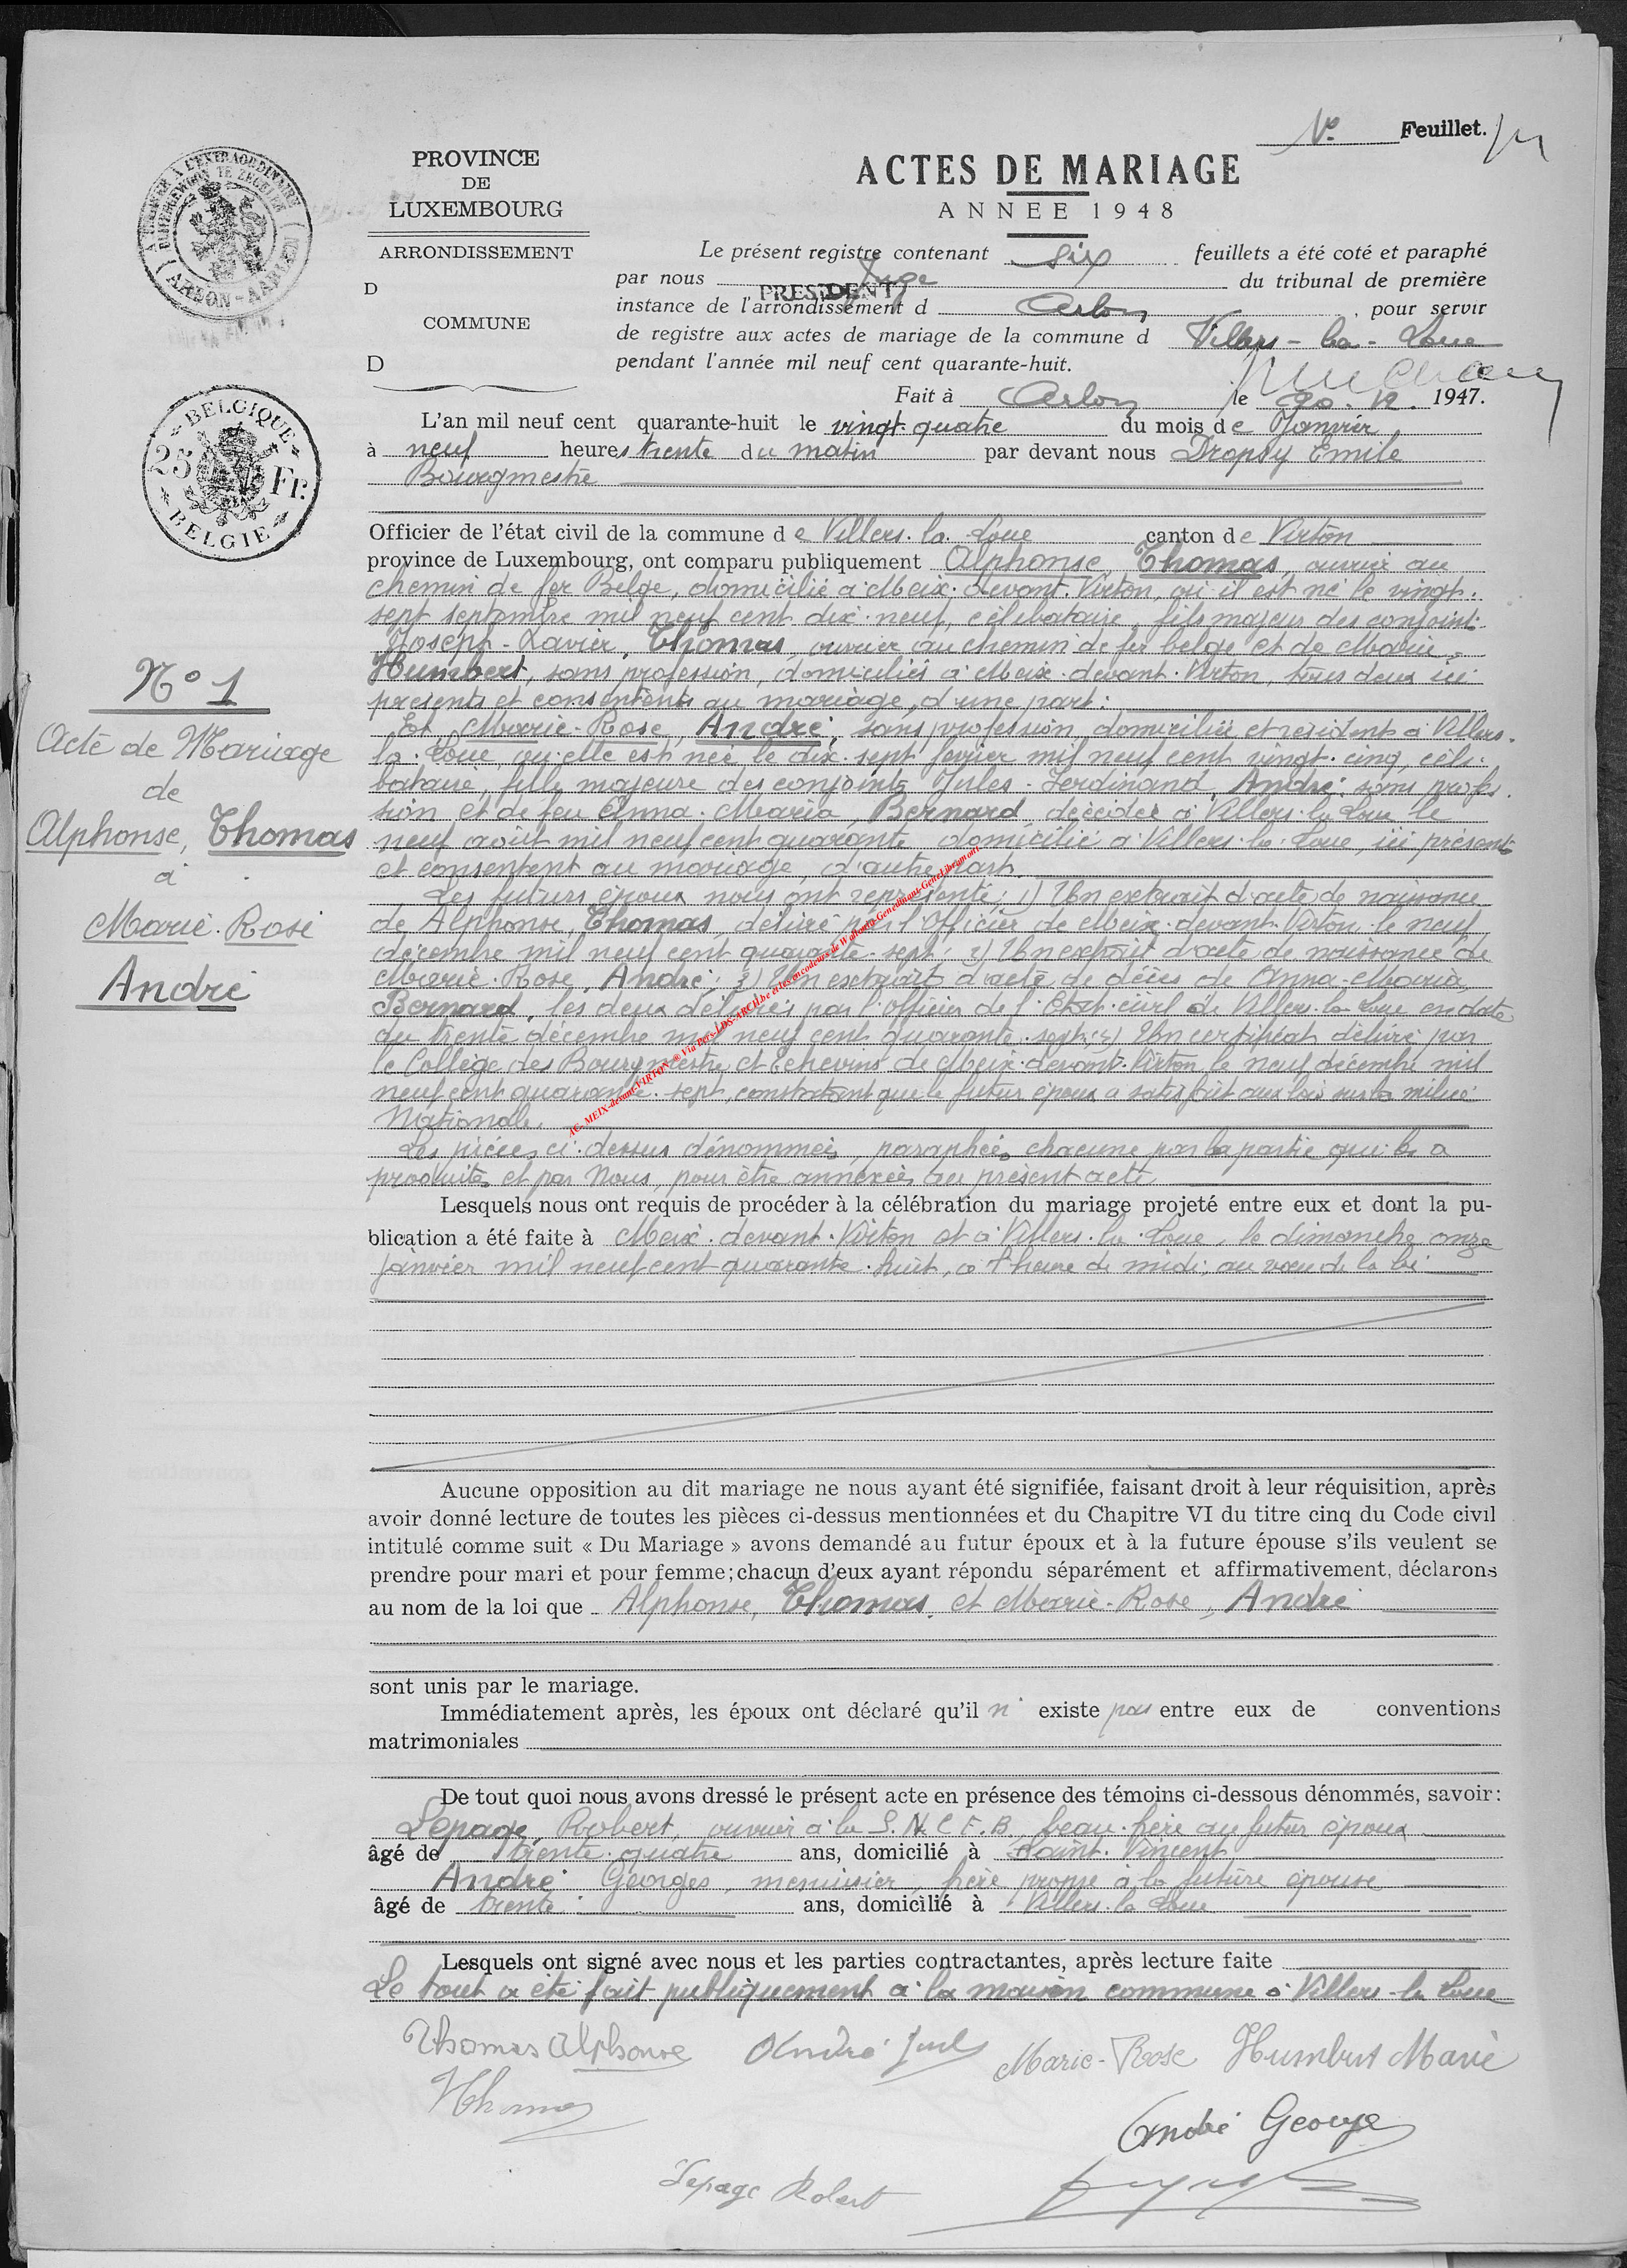 1º Feuillet.
PROVINCE
DE
LUXEMBOURG
ARRONDISSEMENT
D
COMMUNE
D
BELGIQUE
25 Fr.
BELGIE
ACTES DE MARIAGE
ANNEE 1948
Le présent registre contenant six feuillets a été coté et paraphé
par nous Juge PRESIDENT du tribunal de première
instance de l'arrondissement d Arlon, pour servir
de registre aux actes de mariage de la commune d Villers-la-Loue
pendant l'année mil neuf cent quarante-huit.
Fait à Arlon le 20.12. 1947.
L'an mil neuf cent quarante-huit le vingt-quatre du mois de Janvier
à neuf heures trente du matin par devant nous Dropsy Emile
Bourgmestre
Officier de l'état civil de la commune de Villers-la-Loue canton de Virton
province de Luxembourg, ont comparu publiquement Alphonse, Thomas, ouvrier au
chemin de fer Belge, domicilié à Meix-devant-Virton, où il est né le vingt-
sept septembre mil neuf cent dix-neuf, célibataire, fils majeur des conjoints
Joseph-Xavier, Thomas, ouvrier au chemin de fer belge et de Marie,
Humbert, sans profession, domiciliés à Meix-devant-Virton, tous deux ici
présents et consentents au mariage, d'une part:
Et Marie-Rose, André, sans profession, domiciliée et résident à Villers-
la-Loue, où elle est née le dix-sept février mil neuf cent vingt-cinq, céli-
bataire, fille majeure des conjoints Jules-Ferdinand, André, sans profes-
sion et de feu Anna-Maria, Bernard, décédée à Villers-la-Loue le
neuf août mil neuf cent quarante, domicilié à Villers-la-Loue, ici présent
et consentent au mariage, d'autre part
Les futurs époux nous ont représenté; 1) Un extrait d'acte de naissance
de Alphonse, Thomas, délivré par l'Officier de Meix-devant-Virton le neuf
décembre mil neuf cent quarante-sept; 2) Un extrait d'acte de naissance de
Marie-Rose, André; 3) Un extrait d'acte de décès de Anna-Maria,
Bernard, les deux délivrés par l'officier de l'Etat-civil de Villers-la-Loue en date
du trente décembre mil neuf cent quarante-sept; 4) Un certificat délivré par
le Collège des Bourgmestre et Echevins de Meix-devant-Virton le neuf décembre mil
neuf cent quarante-sept, constatant que le futur époux a satisfait aux lois sur la milice
Nationale.
Les pièces ci-dessus dénommées, paraphées chacune par la partie qui les a
produites et par Nous, pour être annexées au présent acte
Lesquels nous ont requis de procéder à la célébration du mariage projeté entre eux et dont la pu-
blication a été faite à Meix-devant-Virton et à Villers-la-Loue, le dimanche onze
janvier mil neuf cent quarante-huit, à l'heure de midi, au voeu de la loi
Aucune opposition au dit mariage ne nous ayant été signifiée, faisant droit à leur réquisition, après
avoir donné lecture de toutes les pièces ci-dessus mentionnées et du Chapitre VI du titre cinq du Code civil
intitulé comme suit « Du Mariage » avons demandé au futur époux et à la future épouse s'ils veulent se
prendre pour mari et pour femme; chacun d'eux ayant répondu séparément et affirmativement, déclarons
au nom de la loi que Alphonse, Thomas, et Marie-Rose, André
sont unis par le mariage.
Immédiatement après, les époux ont déclaré qu'il n' existe pas entre eux de conventions
matrimoniales
De tout quoi nous avons dressé le présent acte en présence des témoins ci-dessous dénommés, savoir:
Lepage, Robert, ouvrier à la S.N.C.F.B. beau-frère au futur époux
âgé de trente-quatre ans, domicilié à Saint-Vincent
André Georges, menuisier, frère propre à la future épouse
âgé de trente ans, domicilié à Villers-la-Loue
Lesquels ont signé avec nous et les parties contractantes, après lecture faite
Le tout a été fait publiquement à la maison commune à Villers-la-Loue
Thomas Alphonse André Jules Marie-Rose Humbert Marie
Thomas
André Georges
Lepage Robert
Nº 1
Acte de Mariage
de
Alphonse, Thomas
à
Marie-Rose
André